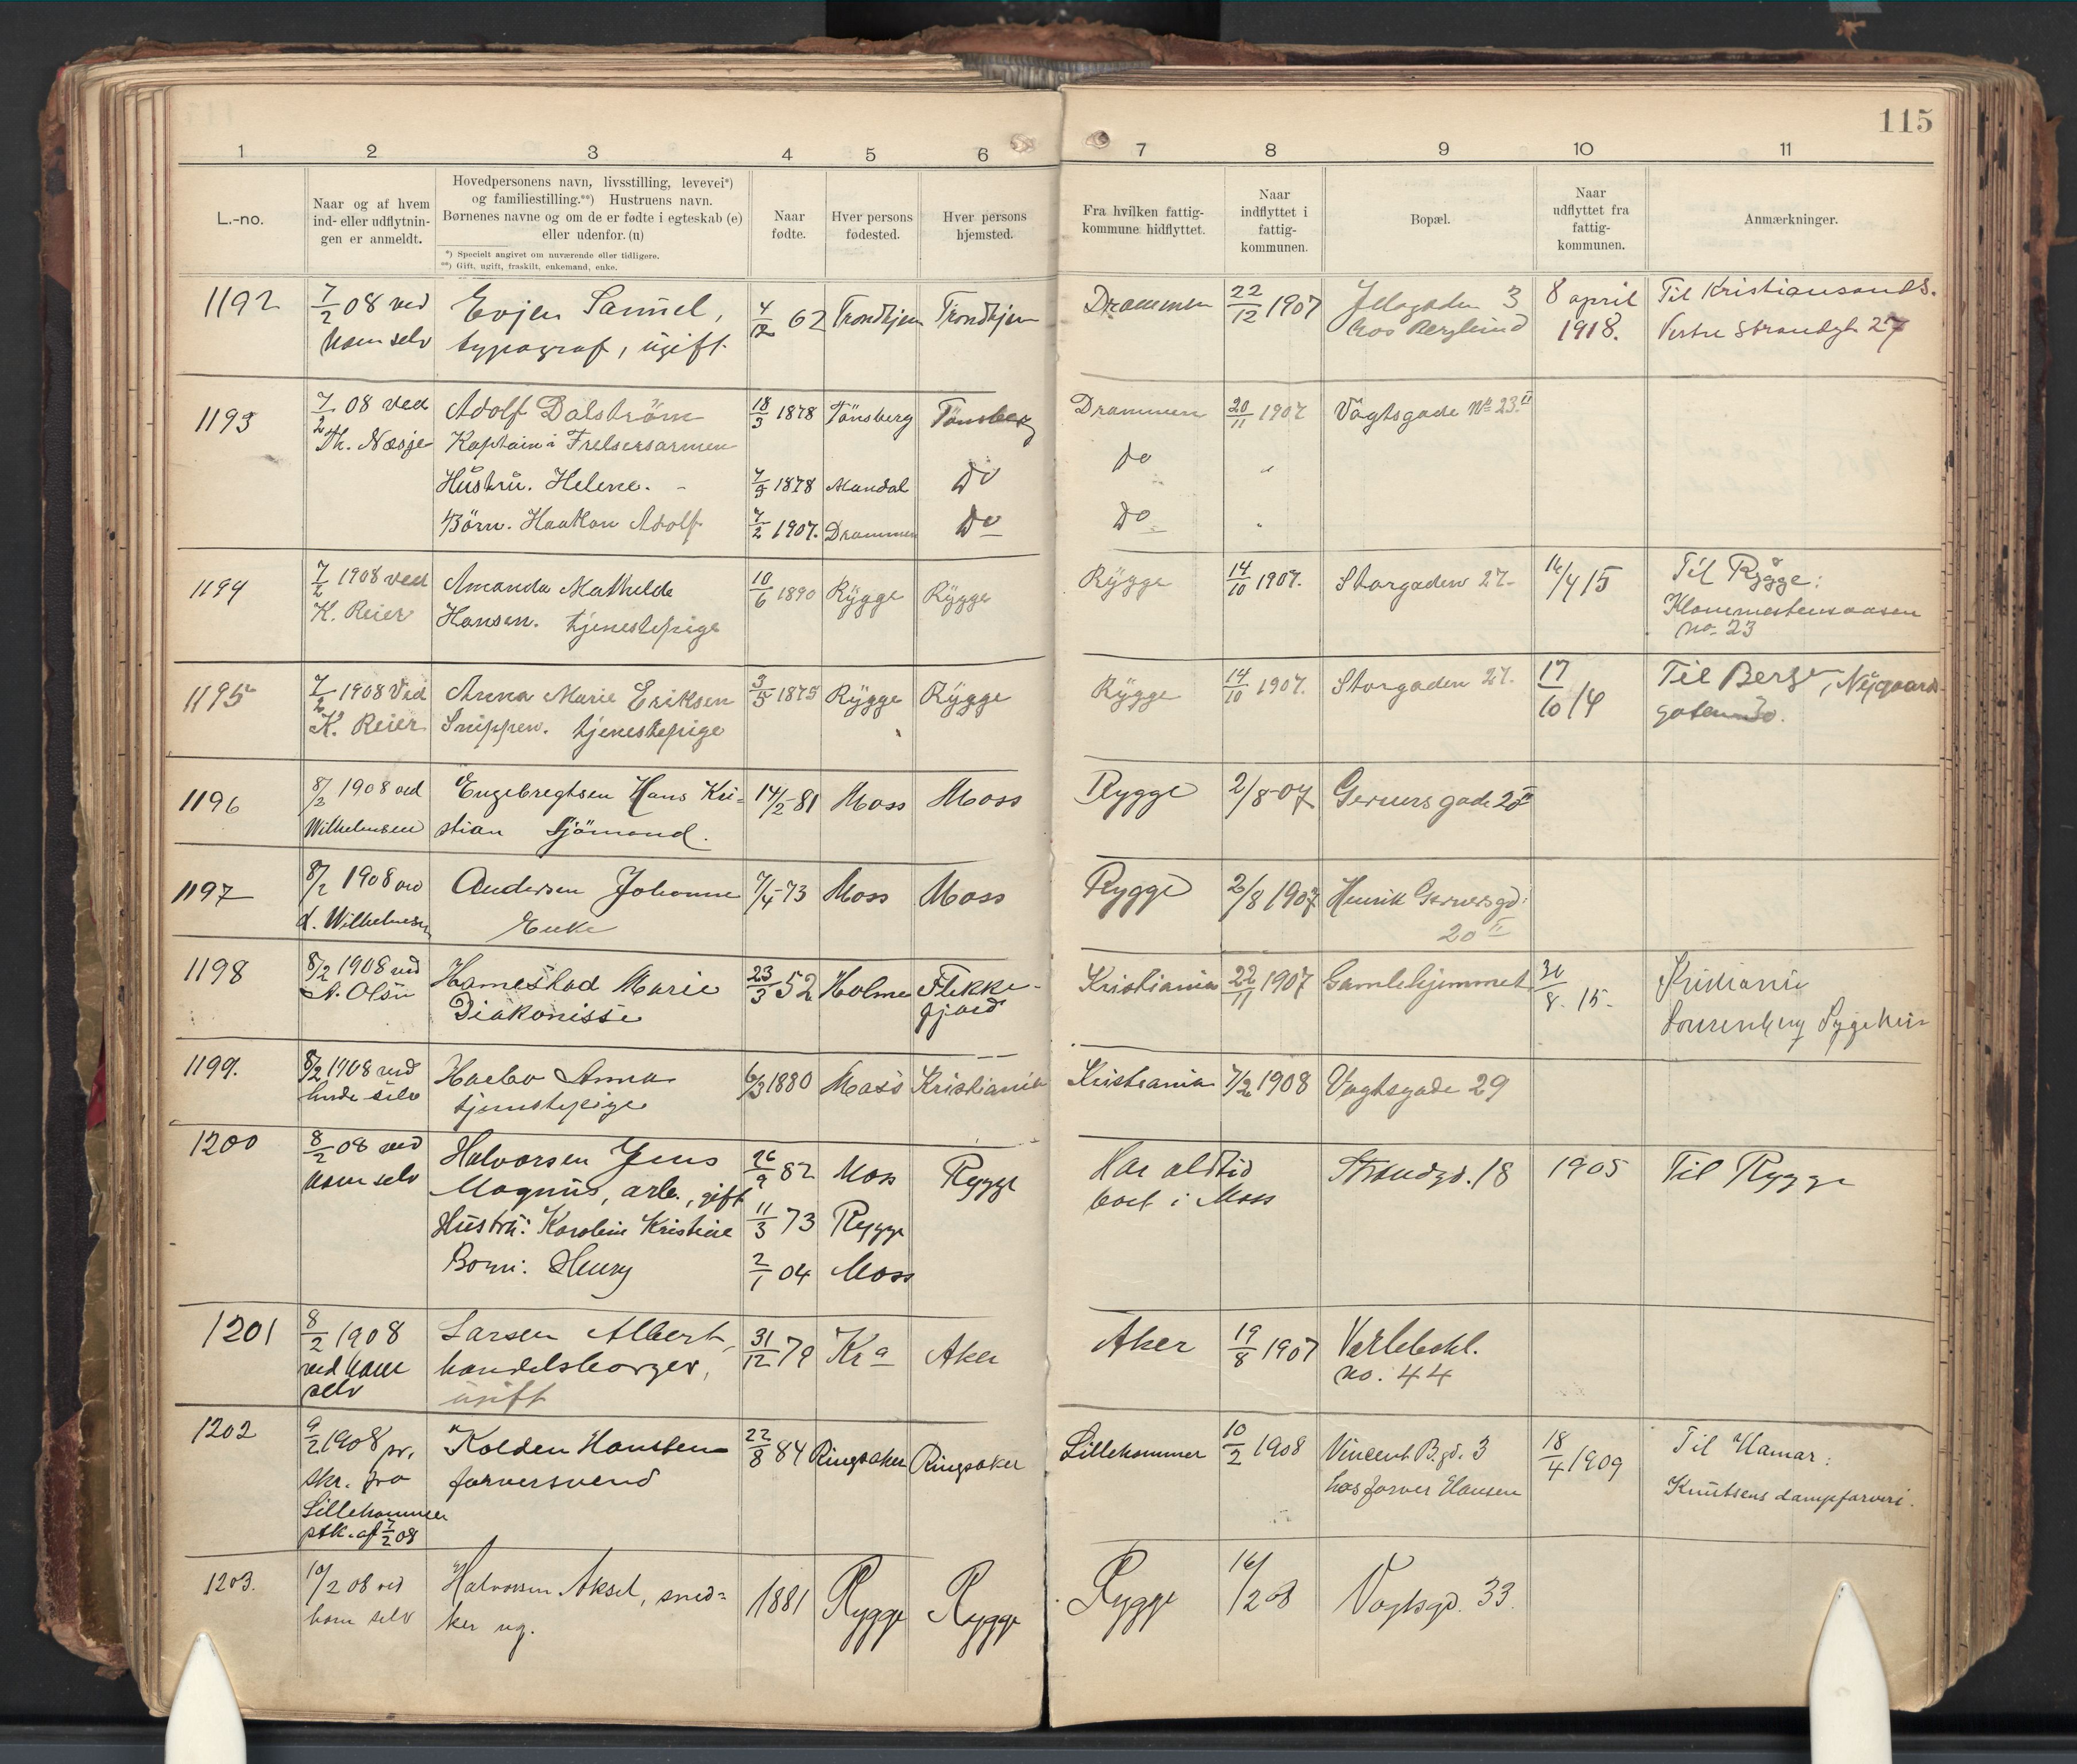 115
1 2 3 4 5 6 7 8 9 10 11
L.-no.
Naar og af hvem
ind- eller udflytnin-
gen er anmeldt.
Hovedpersonens navn, livsstilling, levevei*)
og familiestilling.**) Hustruens navn.
Børnenes navne og om de er fødte i egteskab (e)
eller udenfor. (u)
*) Specielt angivet om nuværende eller tidligere.
**) Gift, ugift, fraskilt, enkemand, enke.
Naar
fødte.
Hver persons
fødested.
Hver persons
hjemsted.
Fra hvilken fattig-
kommune hidflyttet.
Naar
indflyttet i
fattig-
kommunen.
Bopæl.
Naar
udflyttet fra
fattig-
kommunen.
Anmærkninger.
1192 7/2 08 ved Evjen Samuel, 62 Trondhjem Trondhjem Drammen 22/12 1907 3 8 april Til Kristiansand S.
ham selv typograf, ugift hos Berglund 1918. Vestre Strandgt 27
1193 7/2 08 ved Adolf Dalström 18/3 1878 Tönsberg Tönsberg Drammen 20/11 1907 Vogtsgade No 23 II
Th. Næsje Kaptain i Frelsersarmen
Hustru. Helene. 1878 Mandal Do Do "
Börn. Haakon Adolf 7/2 1907. Drammen Do Do "
1194 7/2 1908 ved Amanda Mathilde 10/6 1890 Rygge Rygge Rygge 14/10 1907. Storgaden 27. 16/4 15 Til Rygge:
K. Reier Hansen. tjenestepige
no. 23
1195 7/2 1908 ved Anna Marie Eriksen 3/5 1875 Rygge Rygge Rygge 14/10 1907. Storgaden 27. 17/10 14 Til Berge, Nygaards
K. Reier Snippen. tjenestepige gaten 30.
1196 8/2 1908 ved Engebregtsen Hans Kri- 14/2-81 Moss Moss Rygge 2/8-07 Gerners gade 20 II
Wilhelmsen stian Sjömand.
1197 8/2 1908 ved Andersen Johanne 7/4-73 Moss Moss Rygge 2/8 1907 Henrik Gernersgd:
d. Wilhelmsen Enke 20 II
1198 8/2 1908 ved Hamestad Marie 23/3 52 Holme Flekke- Kristiania 22/11 1907 Gamlehjemmet 8. 15. Kristiania
Olsen Diakonisse fjord Lovisenberg Sygehus
1199. 8/2 1908 ved Anna 6/3 1880 Moss Kristiania Kristiania 7/2 1908 Vogtsgade 29
hende selv tjenstepige
1200 8/2 08 ved Halvorsen Jens 26/9 82 Moss Rygge Har altid Strandgd. 18 1905 Til Rygge
ham selv Magnus, arb., gift boet i Moss
Hustru: Karoline Kristine 11/3 73 Rygge
Barn: Henry 2/1 04 Moss
1201 8/2 1908 Larsen Albert, 31/12 79 Kra Aker Aker 19/8 1907 Varlebakk.
ved ham handelsborger, no. 44
selv ugift
1202 9/2 1908 pr. Kolden Hansten 22/8 84 Ringsaker Ringsaker Lillehammer 10/2 1908 Vincent B. gd. 3 18/4 1909 Til Hamar:
skr. fra farversvend hos farver Hansen Knutsens dampfarveri.
Lillehammer
ptk. af 7/2 08
1203. 10/2 08 ved Halvorsen Aksel, sned- 1881 Rygge Rygge Rygge 16/2 08 Vogtsgd. 33.
ham selv ker ug.